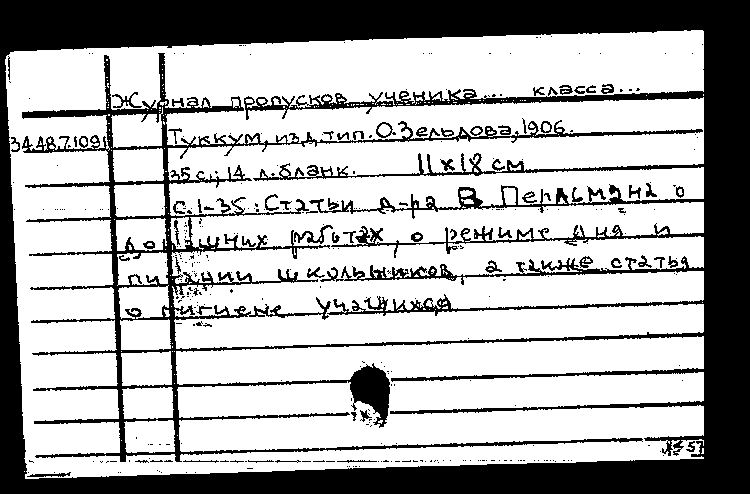 Журнал пропусков ученика... класса...
34.48.7.1091 Туккум, изд. тип. О. Зельдова, 1906.
35 с.; 14 л. бланк. 11 x 18 см
С. 1-35: Статьи д-ра В Перльмана о
домашних работах, о режиме дня и
питании школьников, а также статья
о гигиене учащихся
57